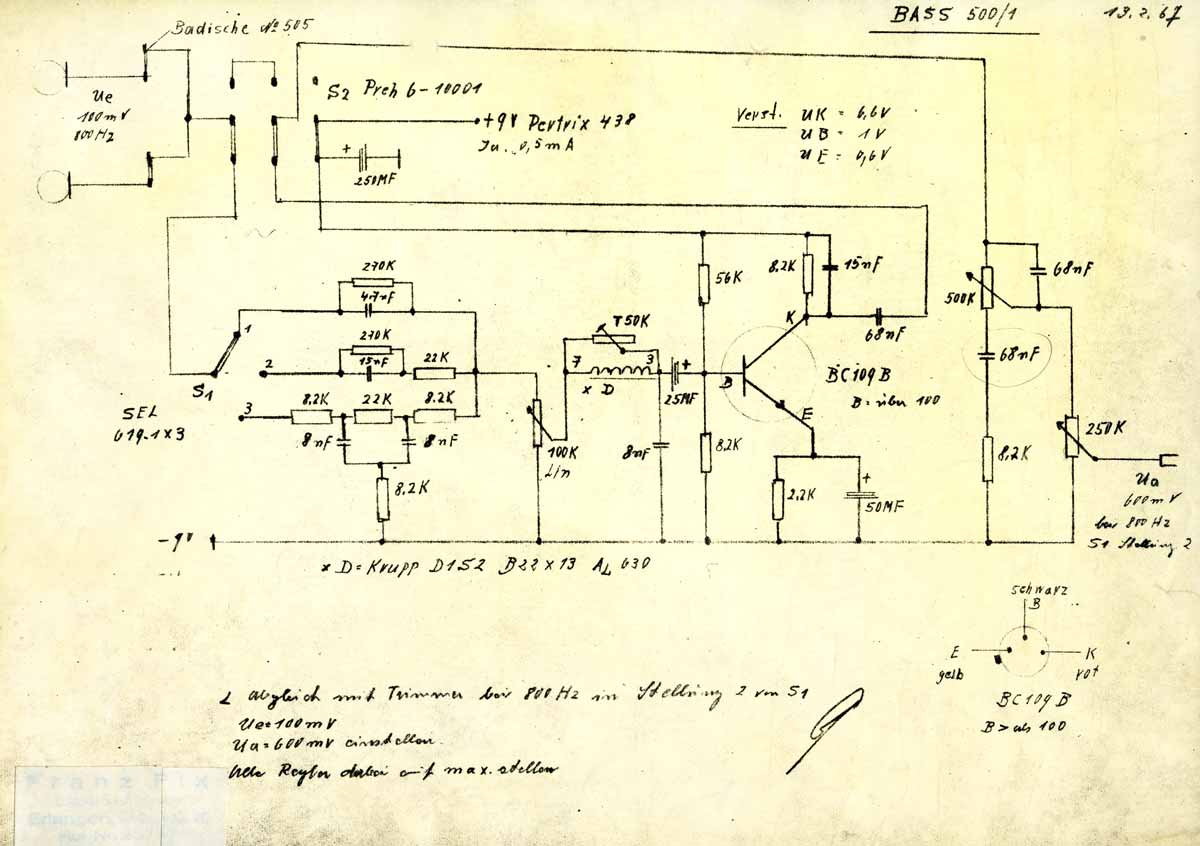 BASS 500/1
13.2.67
Badische No 505
Ue
100mV
800Hz
S2 Preh 6-10001
+9V Pertrix 438
Ja. 0,5mA
+
250MF
Verst. UK = 6,6V
UB = 1V
UE = 0,6V
270K
4,7nF
1
270K
15nF
22K
2
S1
3
8.2K
22K
8.2K
8nF
8nF
8.2K
SEL
619-1x3
100K
Lin
T50K
7
3
x D
+
25MF
8nF
56K
8.2K
8.2K
15nF
K
68nF
B
BC109B
B = über 100
E
2.2K
+
50MF
68nF
500K
68nF
8.2K
250K
Ua
600mV
bei 800Hz
S1 Stellung 2
-9V
x D = Krupp D1S2 B22x13 AL 630
schwarz
B
E
K
gelb
rot
BC109B
B > als 100
L abgleich mit Trimmer bei 800Hz in Stellung 2 von S1
Ue=100mV
Ua=600mV einstellen.
Alle Regler dabei auf max. stellen
Franz Pix
Erlangen